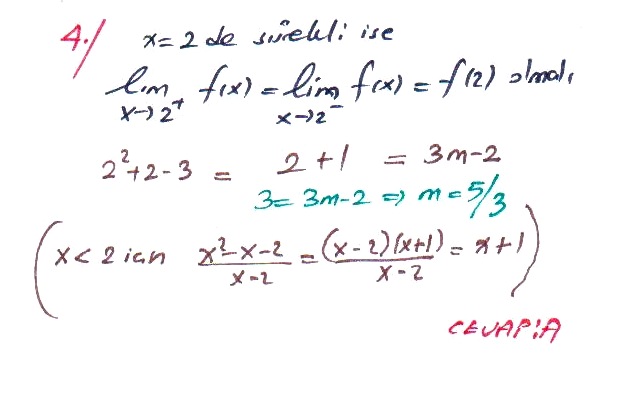 4./ x=2 de sürekli ise
lim x→2⁺ f(x) = lim x→2⁻ f(x) = f(2) olmalı
2²+2-3 = 2+1 = 3m-2
3=3m-2 ⇒ m=5/3
(x<2 için x²-x-2/x-2 = (x-2)(x+1)/x-2 = x+1)
CEVAP:A